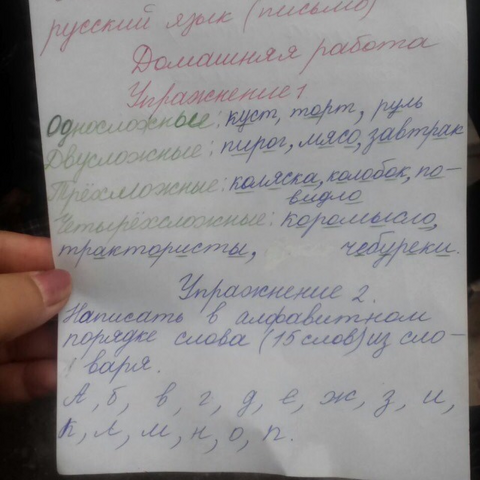 русский язык (письмо)
Домашняя работа
Упражнение 1
Односложные: куст, торт, руль
Двусложные: пирог, мясо, завтрак
Трёхсложные: коляска, колобок, по-
видло
Четырёхсложные: коромысло,
трактористы, чебуреки.
Упражнение 2.
Написать в алфавитном
порядке слова (15 слов) из сло-
варя.
А, б, в, г, д, е, ж, з, и,
к, л, м, н, о, п.